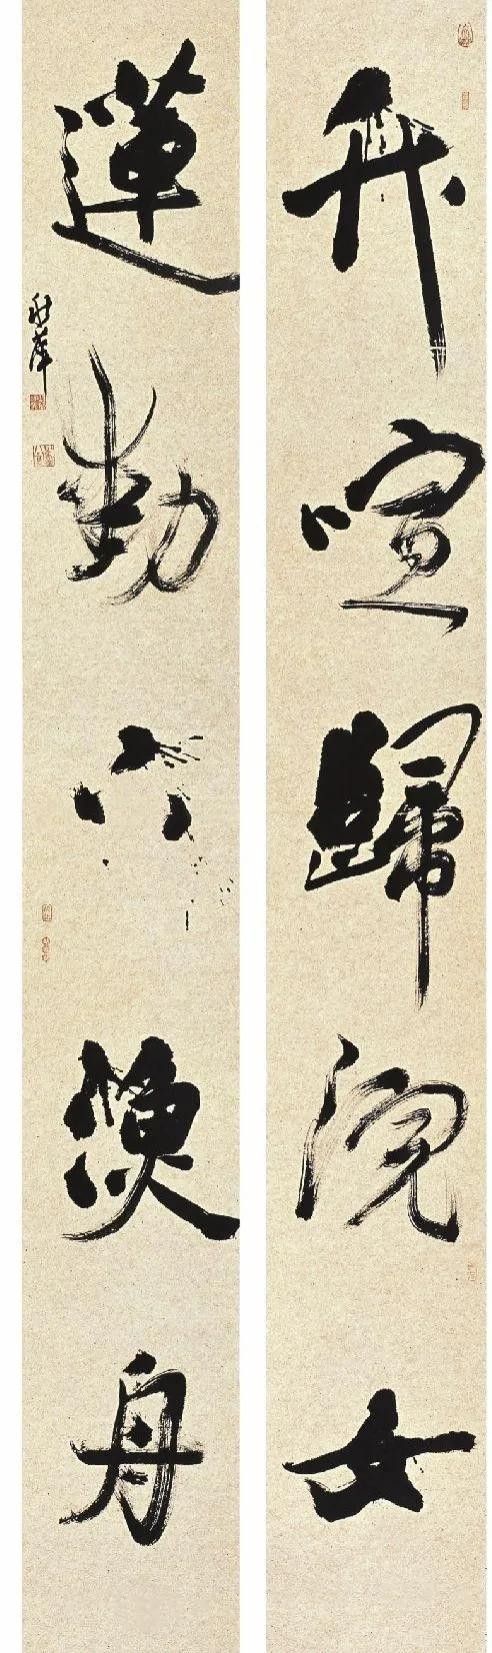 竹喧歸浣女
蓮動下漁舟